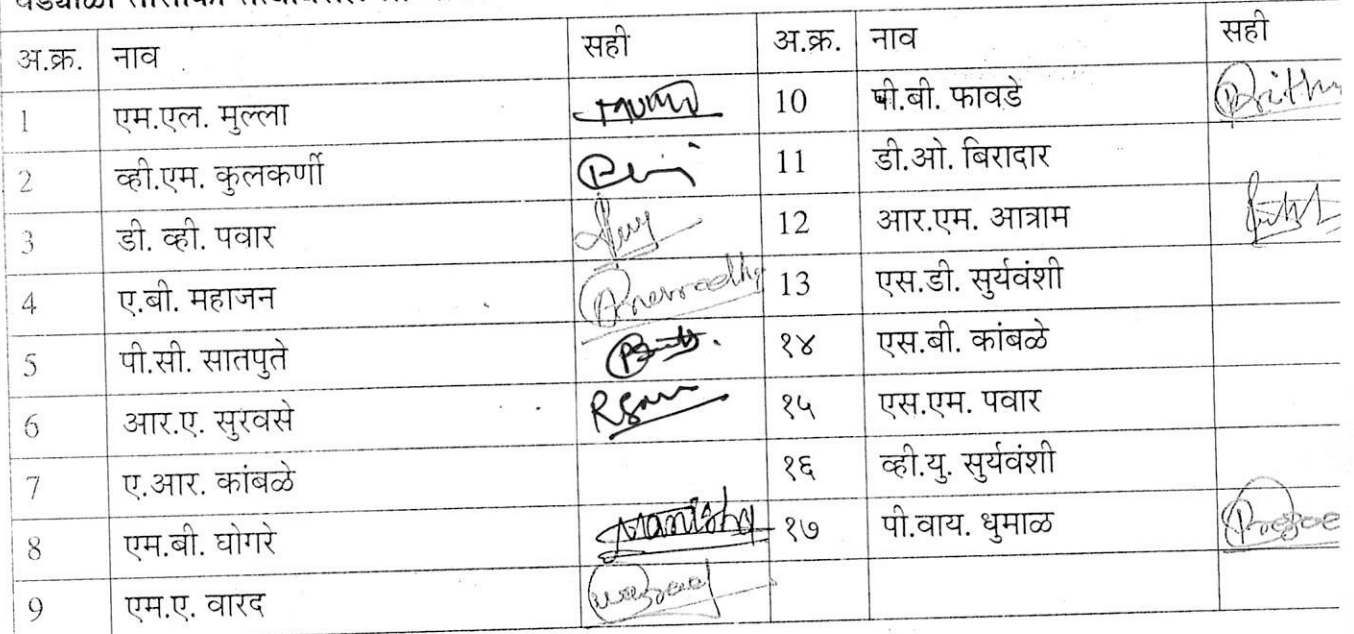 अ.क्र. नाव सही अ.क्र. नाव सही
1 एम.एल. मुल्ला 10 पी.बी. फावडे
2 व्ही.एम. कुलकर्णी 11 डी.ओ. बिरादार
3 डी. व्ही. पवार 12 आर.एम. आत्राम
4 ए.बी. महाजन 13 एस.डी. सुर्यवंशी
5 पी.सी. सातपुते १४ एस.बी. कांबळे
6 आर.ए. सुरवसे १५ एस.एम. पवार
7 ए.आर. कांबळे १६ व्ही.यु. सुर्यवंशी
8 एम.बी. घोगरे Manisha १७ पी.वाय. धुमाळ
9 एम.ए. वारद